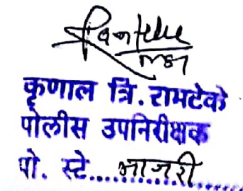 कृणाल त्रि. रामटेके
पोलीस उपनिरीक्षक
पो. स्टे......आजरी......